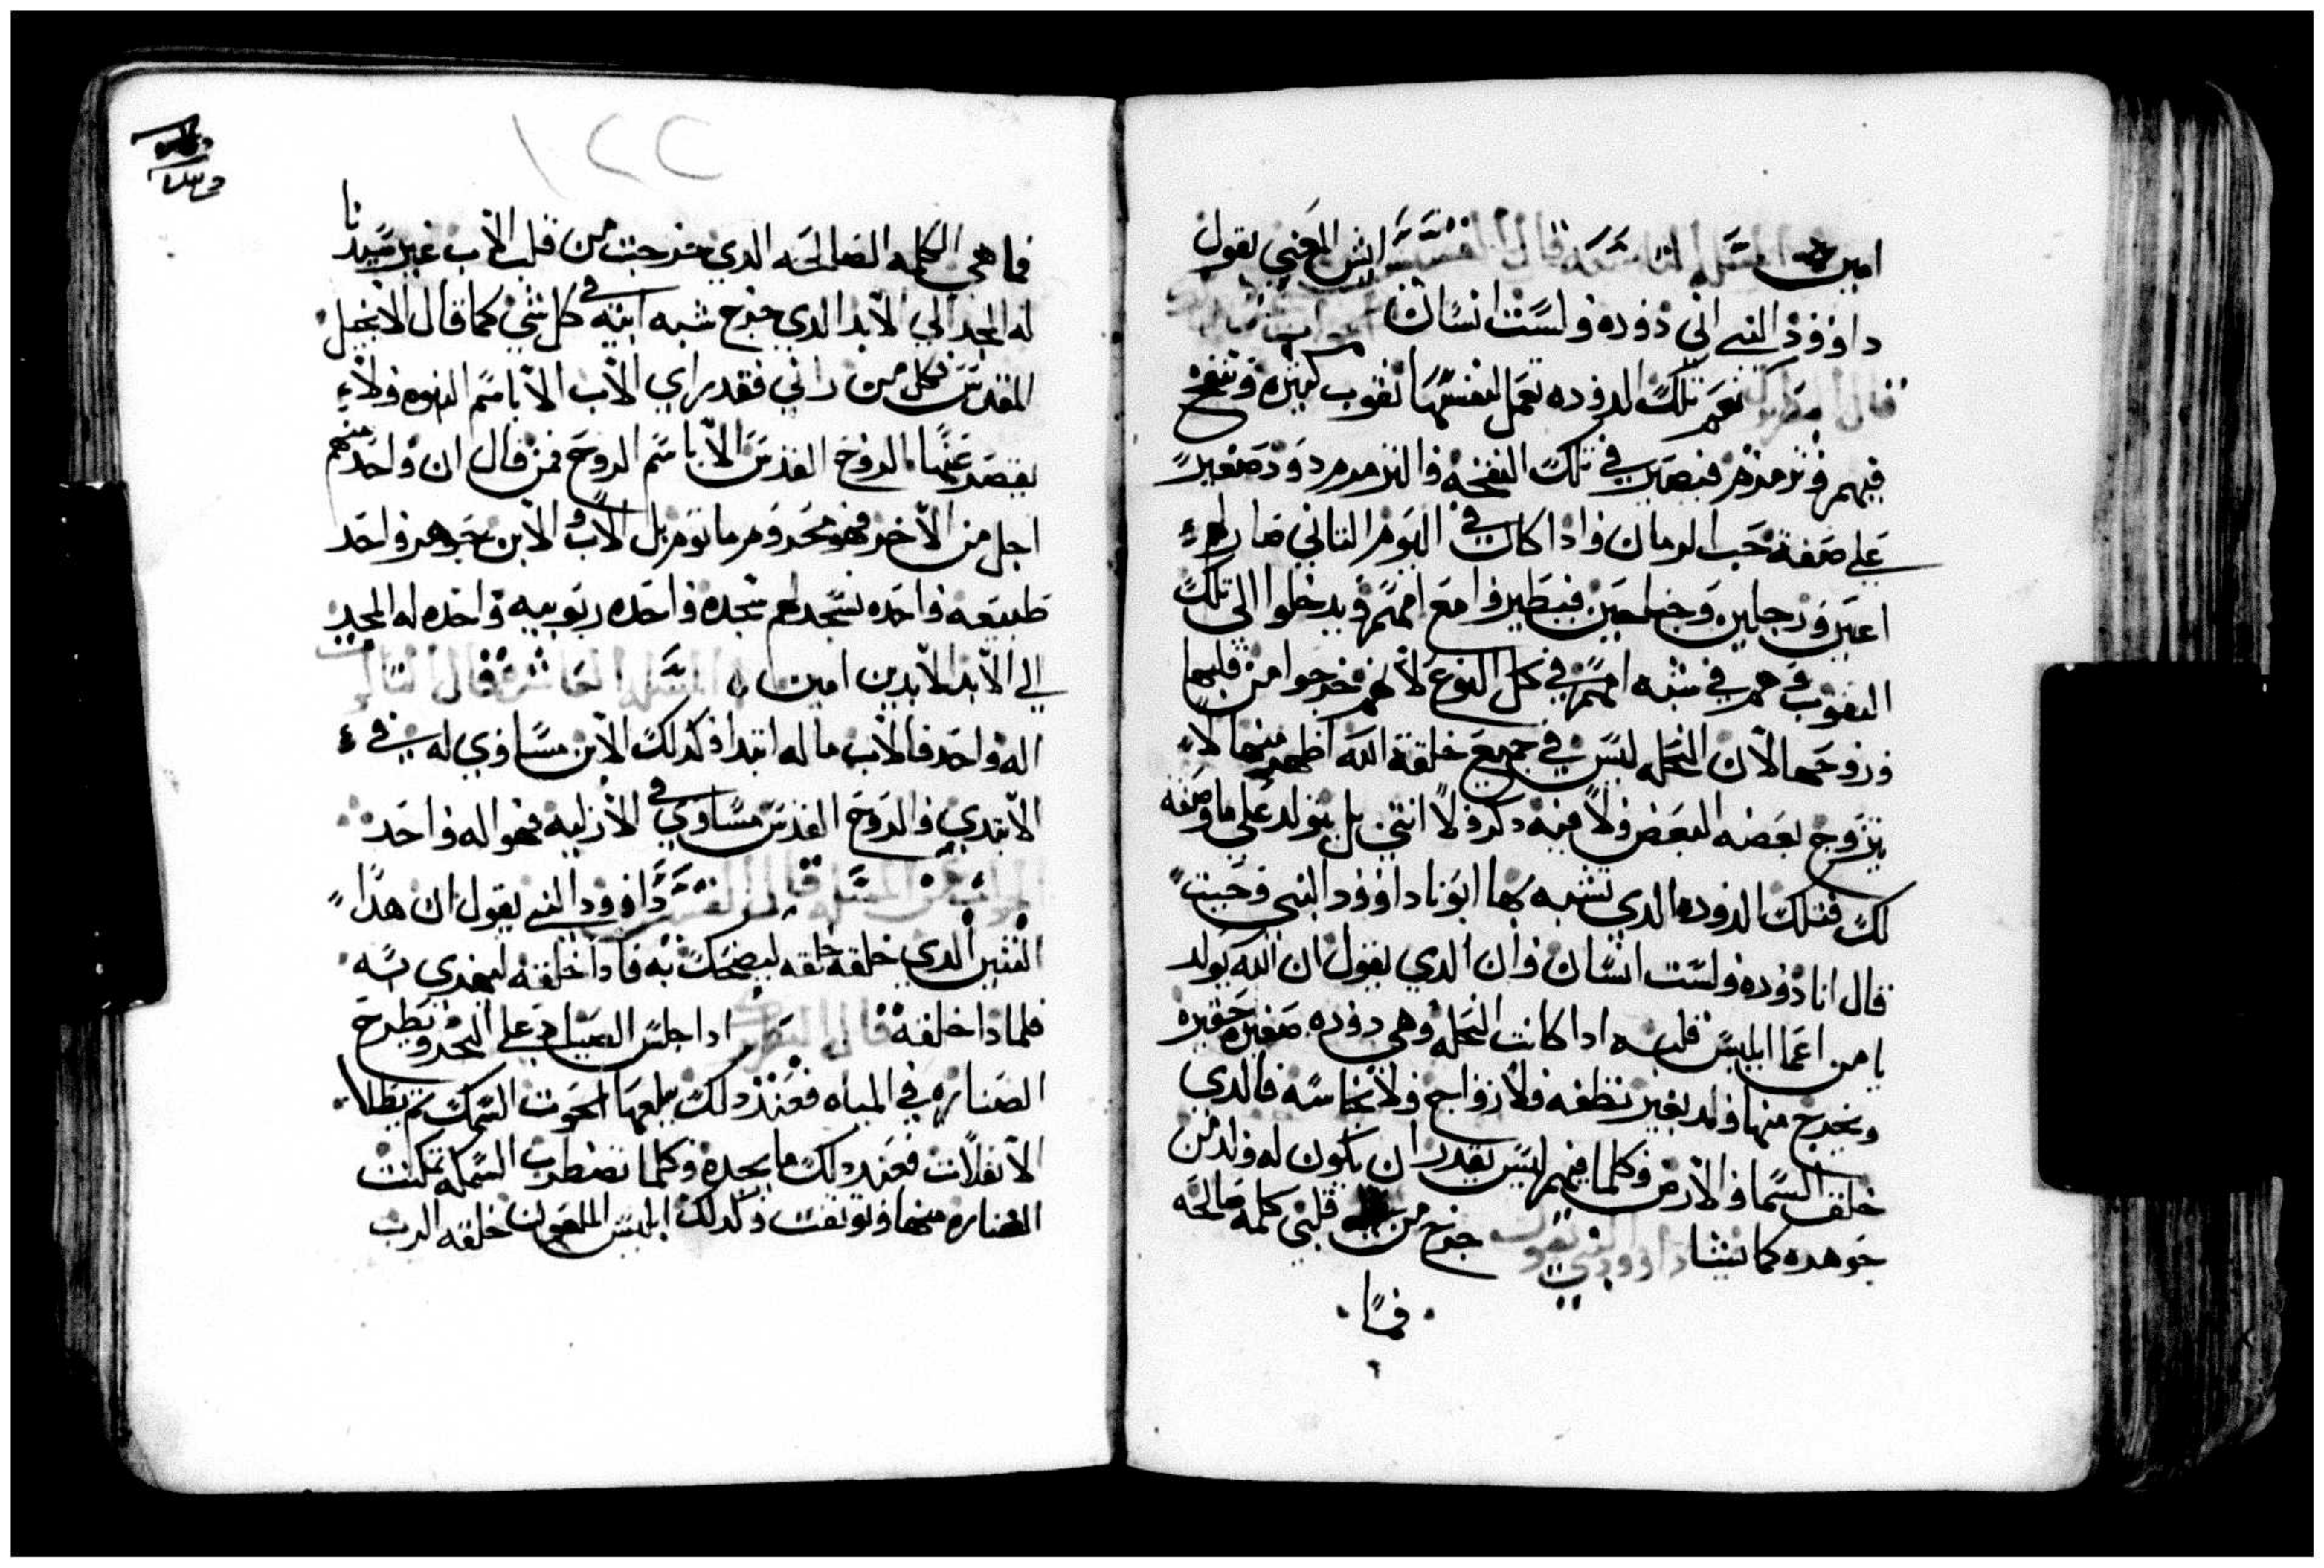 امين المسله التاسعه قال القس ايش المعني يقول
داوود النبي اني دوده ولست انسان الجواب
قال البطريرك نعم تلك الدوده تعمل لنفسها نقوب كبيره وتنفخ
فيهم وتزمزم فيصير في تلك النفخه والتزمزم دود صغير
علي صفة حب الرمان واذا كان في اليوم التاني صار لهم
اعين ورجلين وجناحين فيطيروا مع امهم ويدخلوا الي تلك
النقوب وهم في شبه امهم في كل النوع لانهم خرجوا من قلبها
وروحها لان النحله ليس في جميع خلقة الله اطهر منها لا
يتزوج بعضه البعض ولا فيه دكر ولا انتي بل يتولد علي ما وصفه
لك فتلك الدوده الدي تشبه بها ابونا داوود النبي وحيت
قال انا دوده ولست انسان وان الدي يقول ان الله يولد
يا من اعما ابليس قلبه ادا كانت النحله وهي دوده صغيره حقيره
ويخرج منها ولد بغير نطفه ولا زواج ولا نجاسه فالدي
خلق السما والارض وكلما فيهم ليس يقدر ان يكون له ولد من
جوهره كما يشا داوود النبي يقول خرج من قلبي كلمه صالحه
فما
١٢٢
فما هي الكلمه الصالحه الدي خرجت من قلب الاب غير سيدنا
له المجد الي الابد الدي خرج شبه ابيه في كل شي كما قال الانجيل
المقدس فكل من راني فقد راي الاب الا باسم البنوه ولا
يقصر عنها الروح القدس الا باسم الروح فمن قال ان واحد منهم
اجل من الاخر فهو محروم ما توم بل الاب والابن بجوهر واحد
طبيعه واحده نسجد لهم سجده واحده ربوبيه واحده له المجد
الي الابد الابدين امين المسله العاشره قال
اله واحد فالاب ما له ابتدا وكدلك الابن مساوي له في
الابتدي والروح القدس مساوي في الازليه فهو اله واحد
الجواب عن المسله قال القس داوود النبي يقول ان هدا
التنين الدي خلقة خلقه ليضحك به فادا خلقته ليهدي به
فلمادا خلقه قال البطريرك ادا جلس الصياد علي البحر ويطرح
الصناره في المياه فعند دلك يبلعها الحوت السمك تم يطلب
الانفلات فعند دلك ما يجده وكلما تضطرب السمكه تمكنت
الصناره منها وتوتقت وكدلك ابليس الملعون خلقه الرب